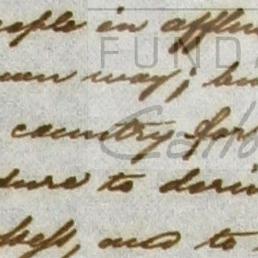 people in afflu
own way; bu
country for
dure to deri
, and to